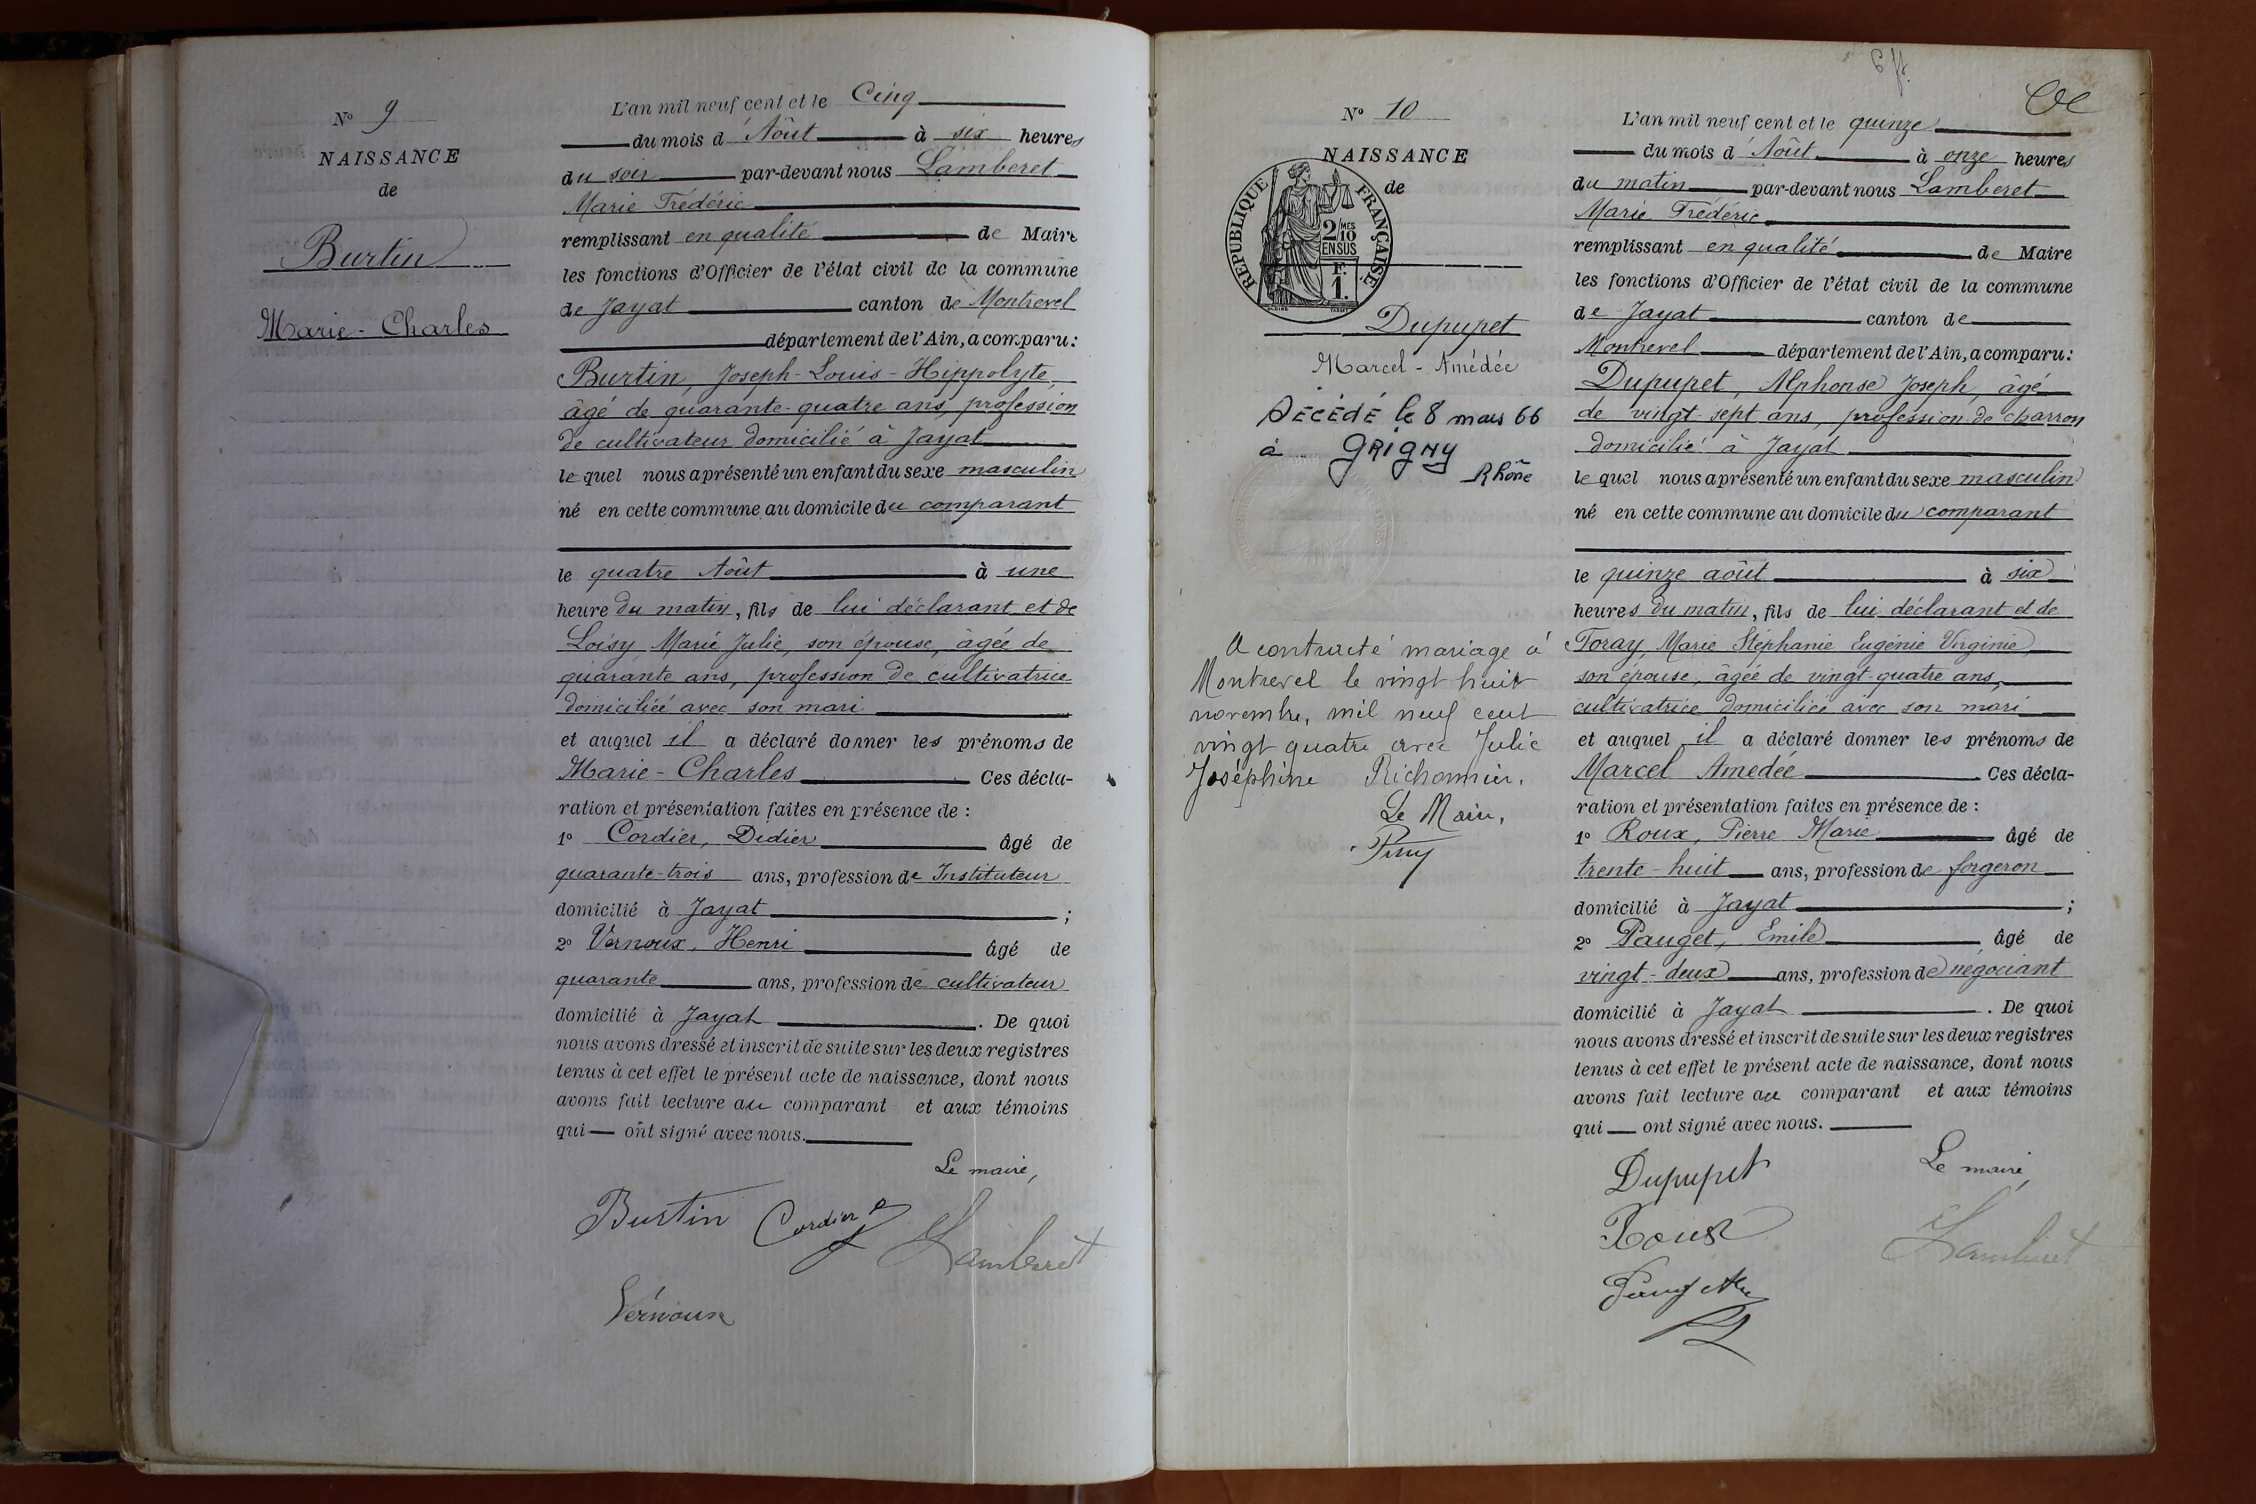 N° 9
NAISSANCE
de
Burtin
Marie-Charles
L'an mil neuf cent et le Cinq
du mois d'Aôut à six heures
du soir par-devant nous Lamberet
Marie Frédéric
remplissant en qualité de Maire
les fonctions d'Officier de l'état civil de la commune
de Jayat canton de Montrevel
département de l'Ain, a comparu:
Burtin, Joseph-Louis-Hippolyte,
âgé de quarante-quatre ans, profession
de cultivateur domicilié à Jayat
le quel nous a présenté un enfant du sexe masculin
né en cette commune au domicile du comparant
le quatre Aôut à une
heure du matin, fils de lui déclarant et de
Loisy Marie Julie, son épouse, âgée de
quarante ans, profession de cultivatrice
domiciliée avec son mari
et auquel il a déclaré donner les prénoms de
Marie-Charles Ces décla-
ration et présentation faites en présence de :
1° Cordier, Didier âgé de
quarante-trois ans, profession de Instituteur
domicilié à Jayat ;
2° Vernoux, Henri âgé de
quarante ans, profession de cultivateur
domicilié à Jayat . De quoi
nous avons dressé et inscrit de suite sur les deux registres
tenus à cet effet le présent acte de naissance, dont nous
avons fait lecture au comparant et aux témoins
qui ont signé avec nous.
Le maire,
Burtin Cordier Lamberet
Vernoux
N° 10
NAISSANCE
de
RÉPUBLIQUE FRANÇAISE
2/10 MES
EN SUS
F.
1.
Dupupet
Marcel-Amédée
DÉCÉDÉ le 8 mars 66
à GRIGNY
Rhône
A contracté mariage à
Montrevel le vingt huit
novembre, mil neuf cent
vingt quatre avec Julie
Joséphine Richonnier.
Le Maire,
L'an mil neuf cent et le quinze
du mois d'Aôut à onze heures
du matin par-devant nous Lamberet
Marie Frédéric
remplissant en qualité de Maire
les fonctions d'Officier de l'état civil de la commune
de Jayat canton de
Montrevel département de l'Ain, a comparu:
Dupupet, Alphonse Joseph, âgé
de vingt-sept ans, profession de charron
domicilié à Jayat
le quel nous a présenté un enfant du sexe masculin
né en cette commune au domicile du comparant
le quinze aôut à six
heures du matin, fils de lui déclarant et de
Foray, Marie Stéphanie Eugénie Virginie
son épouse, âgée de vingt-quatre ans,
cultivatrice domiciliée avec son mari
et auquel il a déclaré donner les prénoms de
Marcel Amedée Ces décla-
ration et présentation faites en présence de :
1° Roux, Pierre Marie âgé de
trente-huit ans, profession de forgeron
domicilié à Jayat ;
2° Pauget, Emile âgé de
vingt-deux ans, profession de négociant
domicilié à Jayat . De quoi
nous avons dressé et inscrit de suite sur les deux registres
tenus à cet effet le présent acte de naissance, dont nous
avons fait lecture au comparant et aux témoins
qui ont signé avec nous.
Dupupet Le maire
Roux Lamberet